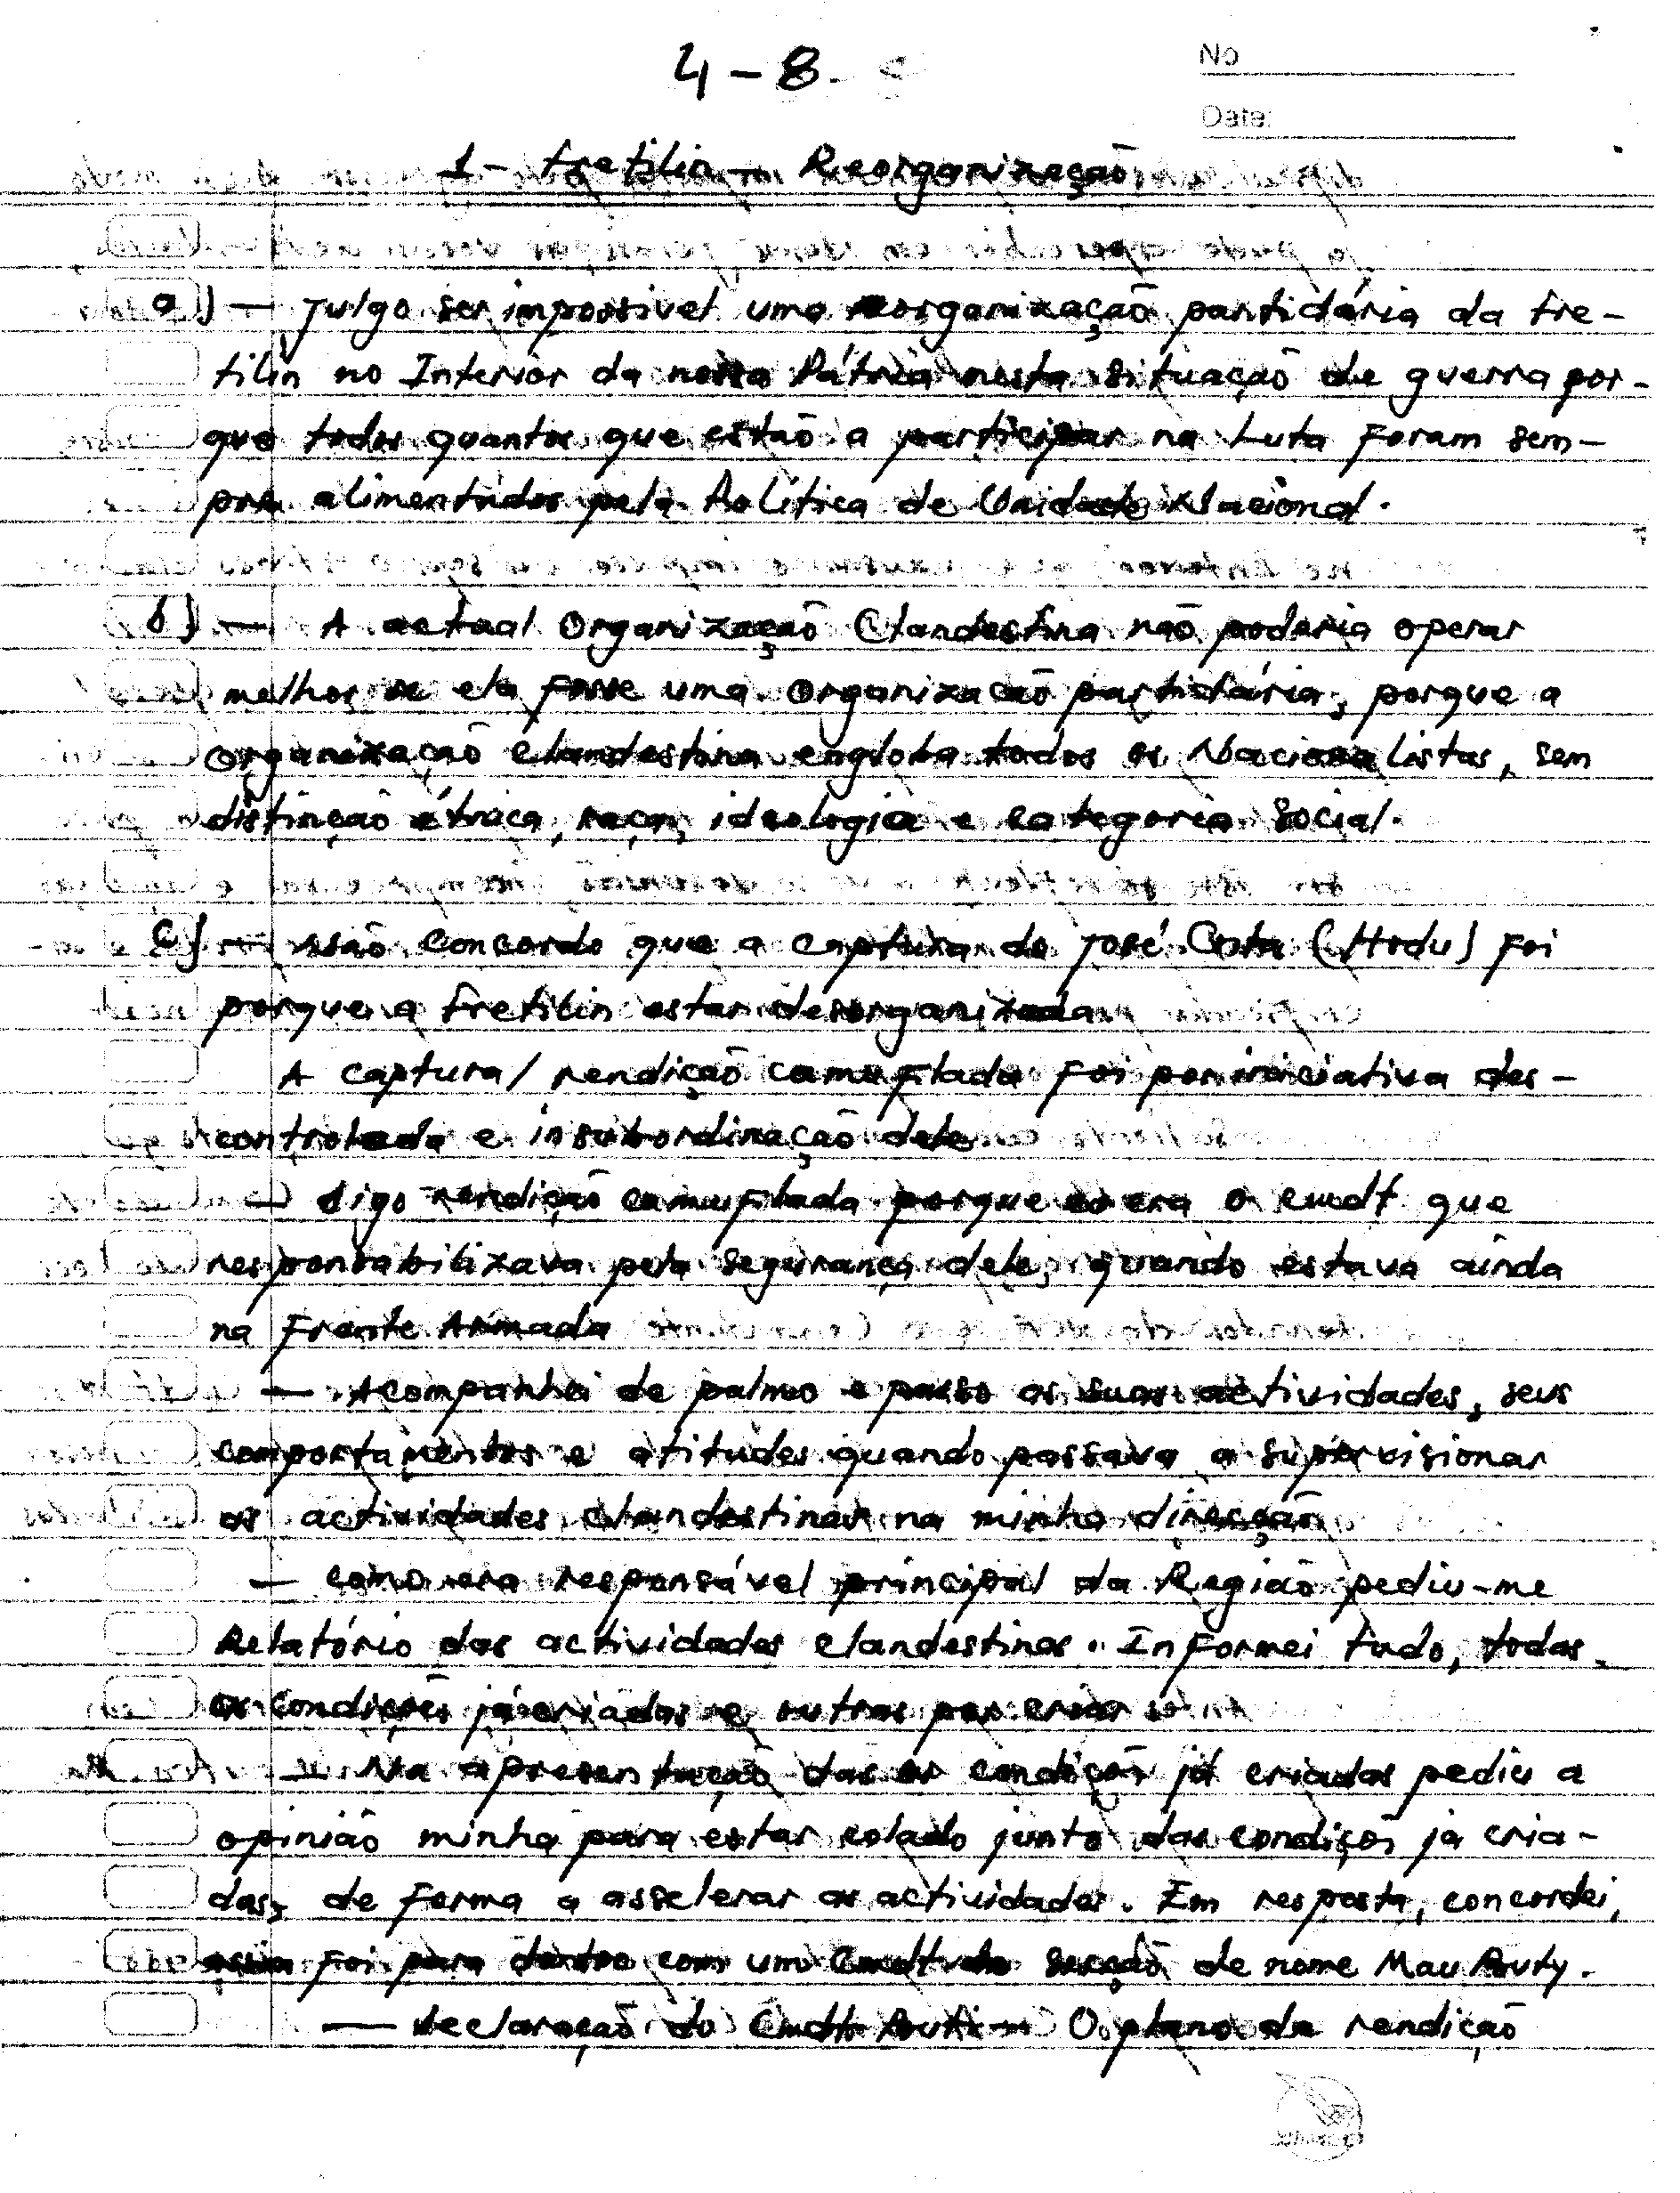 4-8-
No
Date:
1- Fretilin - Reorganização
a) - Julgo ser impossivel uma reorganização partidária da Fre-
tilin no Interior da nossa Pátria nesta situação de guerra por-
que todos quantos que estão a participar na Luta Foram sem-
pre alimentados pela Política de Unidade Nacional.
b) - A actual Organização Clandestina não poderia operar
melhor se ela fosse uma Organização partidária, porque a
Organização clandestina engloba todos os Nacionalistas, sem
distinção étnica, raça, ideologia e categoria Social.
c) - Não concordo que a captura do José Costa (Hodu) Foi
porque a Fretilin estar desorganizada
A captura/ rendição camuflada foi por iniciativa des-
controlada e insubordinação dele
- digo rendição camuflada porque eu era o cmdt que
responsabilizava pela segurança dele, quando estava ainda
na Frente Armada
- Acompanhei de palmo e passo as suas actividades, seus
comportamentos e atitudes quando passava a supervisionar
as actividades clandestinas na minha direcção
- Como era responsável principal da Região pediu-me
Relatório das actividades clandestinas. Informei tudo, todas
as condições já criadas e outras por criar
- Na apresentação das condiçõs já criadas pediu a
opinião minha para estar colado junto das condiçõs já cria-
das, de forma a asselerar as actividades. Em resposta, concordei,
assim Foi para dentro com um Cmdt de Secção de nome Mau Buty.
- declaração do Cmdt Buti - O plano da rendição